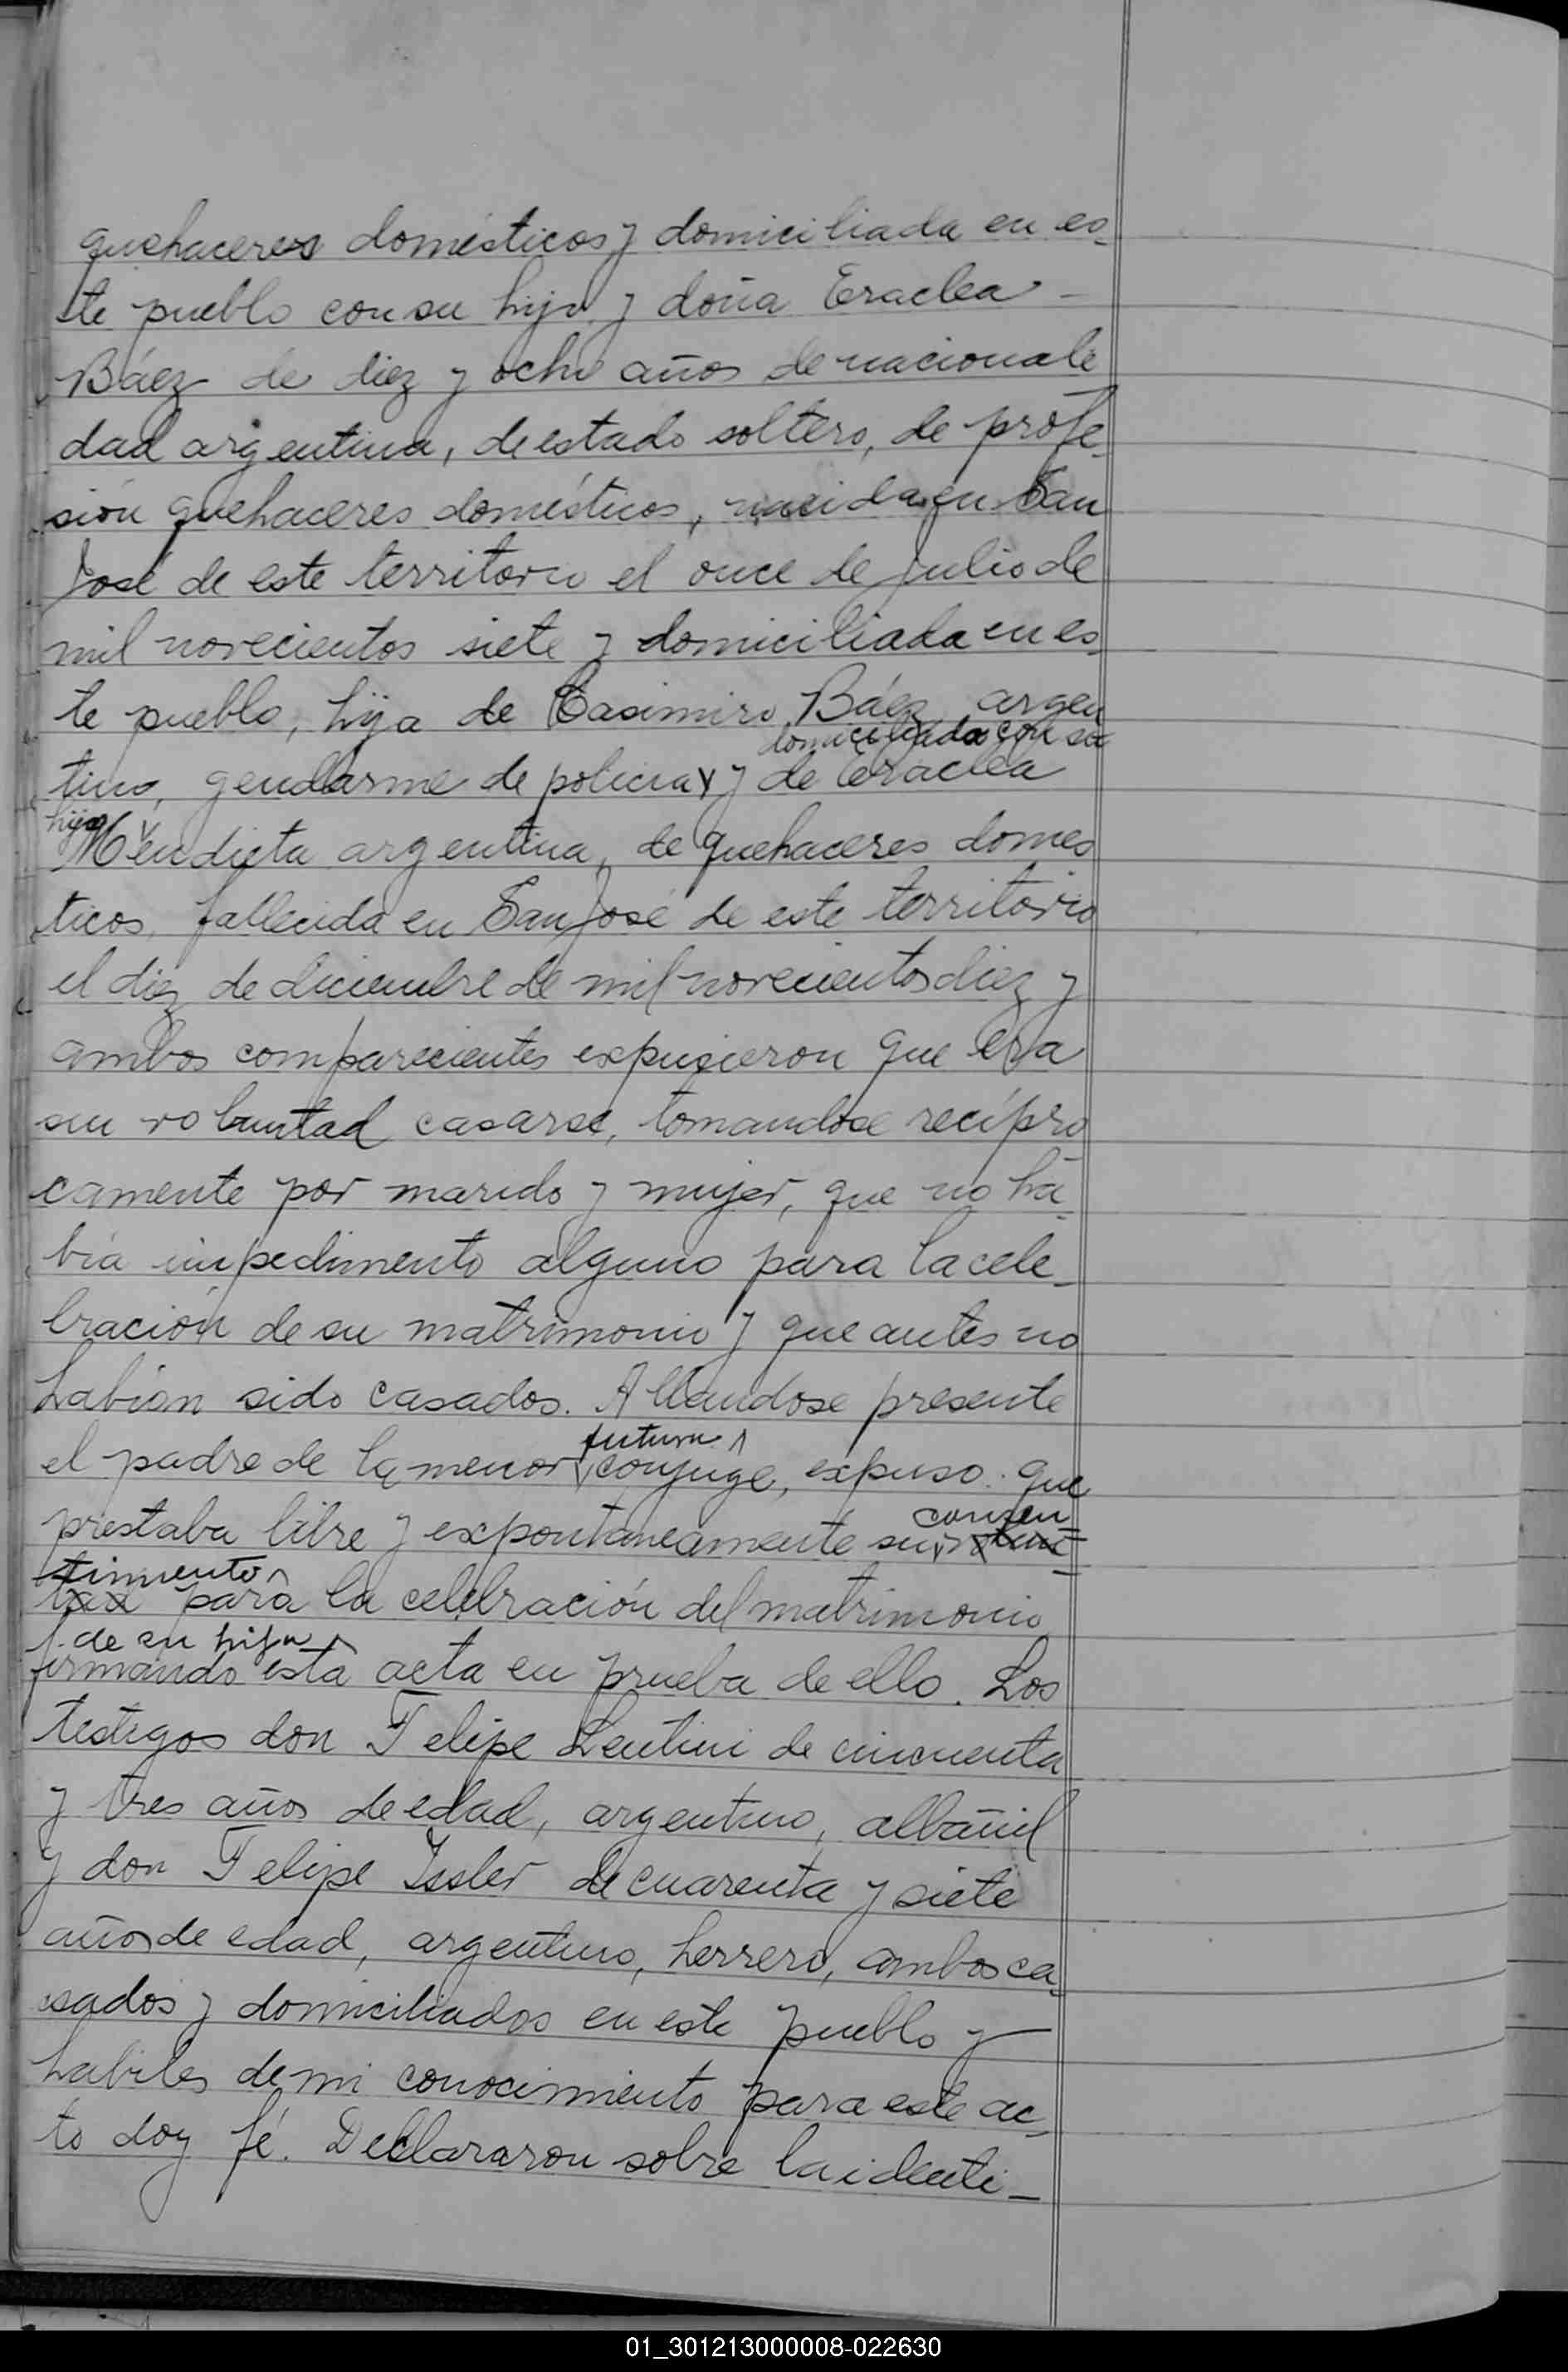 quehaceres domésticos y domiciliada en es-
te pueblo con su hijo y doña Eraclea -
Báez de diez y ocho años de nacionali
dad argentina, de estado soltero, de profe-
sión quehaceres domésticos, nacida en San
José de este territorio el once de Julio de
mil novecientos siete y domiciliada en es-
te pueblo, hija de Casimiro Báez argen
domiciliado con su
tino, gendarme de policia y de Eraclea
hija
Mendieta argentina, de quehaceres domes
ticos, fallecida en San José de este territorio
el diez de diciembre de mil novecientos diez y
ambos comparecientes expusieron que era
su voluntad casarse, tomandose recípro
camente por marido y mujer, que no ha-
bía impedimento alguno para la cele-
bración de su matrimonio y que antes no
habian sido casados. Allandose presente
futura
el padre de la menor conjuge, expuso que
consen
prestaba libre y expontaneamente su volunt-
timiento
tad para la celebración del matrimonio
de su hija
firmando esta acta en prueba de ello. Los
testigos don Felipe Lentini de cincuenta
y tres años de edad, argentino, albañil
y don Felipe Issler de cuarenta y siete
años de edad, argentino, herrero, ambos ca-
sados y domiciliados en este pueblo y
habiles de mi conocimiento para este ac-
to doy fé. Declararon sobre la identi-
01_301213000008-022630